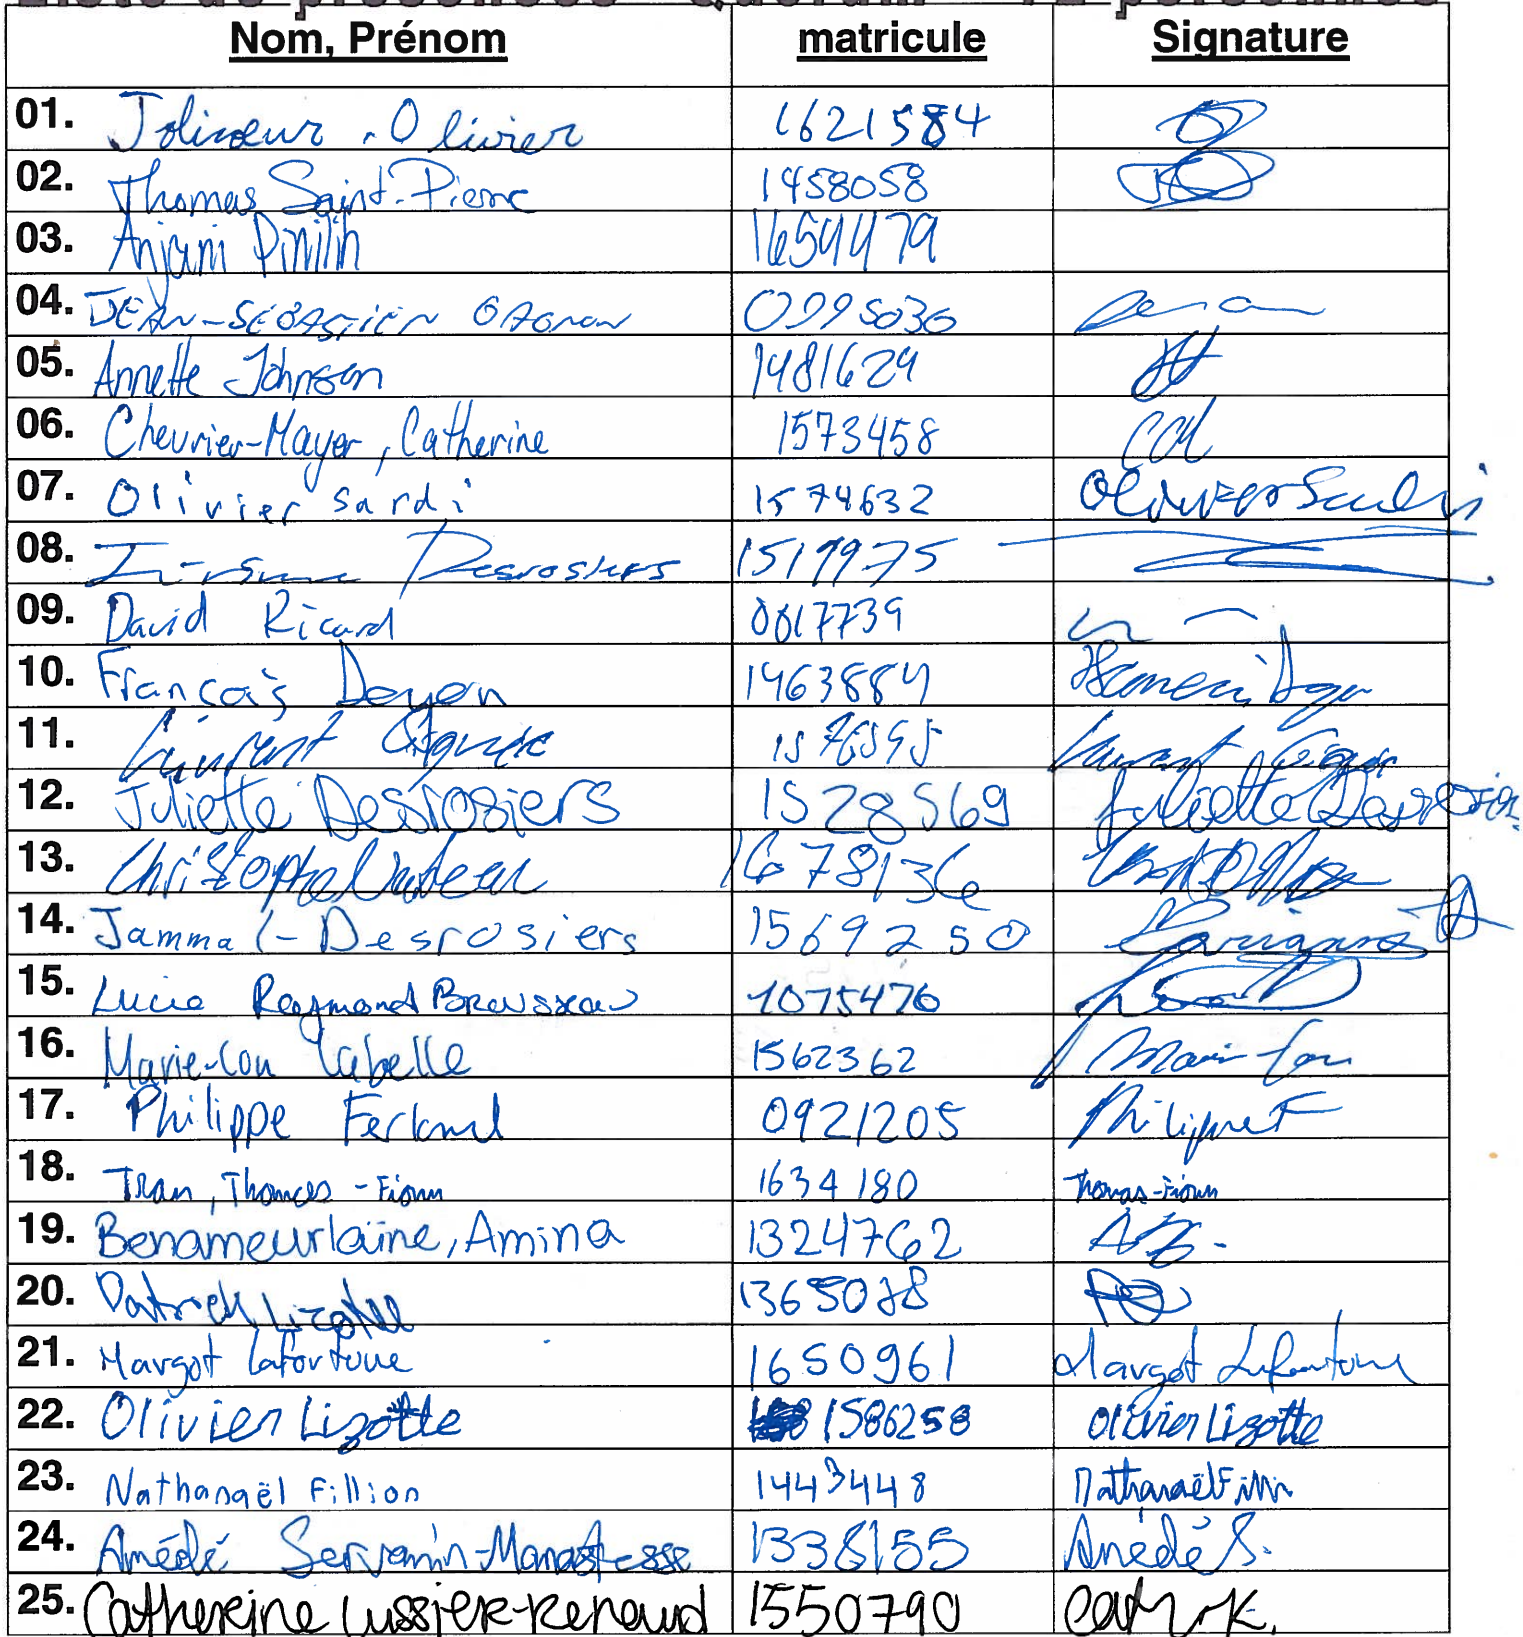 Nom, Prénom matricule Signature
01. Jolicoeur, Olivier 1621584
02. Thomas Saint-Pierre 1458058
03. Anjani 1654479
04. JEAN-SÉBASTIEN GAGNON 0995030
05. Annette Johnson 1481629
06. Chevrier-Mayer, Catherine 1573458
07. Olivier Sardi 1574632 Olivier Sardi
08. Desrosiers 1519975
09. David Ricard 0017739
10. François Doyon 1463884
11. Laurent
12. Juliette Desrosiers 1528569 Juliette Desrosiers
13. Christophe 1678136
14. Jammal-Desrosiers 1569250
15. Lucie Raymond Brousseau 1075476
16. Marie-Lou Labelle 1562362 Marie-Lou
17. Philippe Ferland 0921205 Philippe F
18. Tran, Thomas-Fionn 1634180 Thomas-Fionn
19. Benameurlaine, Amina 1324762
20. Patrick Lizotte
21. Margot Lafortune 1650961 Margot Lafortune
22. Olivier Lizotte 1586258 Olivier Lizotte
23. Nathanaël Fillion 1443448 Nathanaël
24. Amédé 1338155 Amédé S.
25. Catherine Lussier-Renaud 1550790